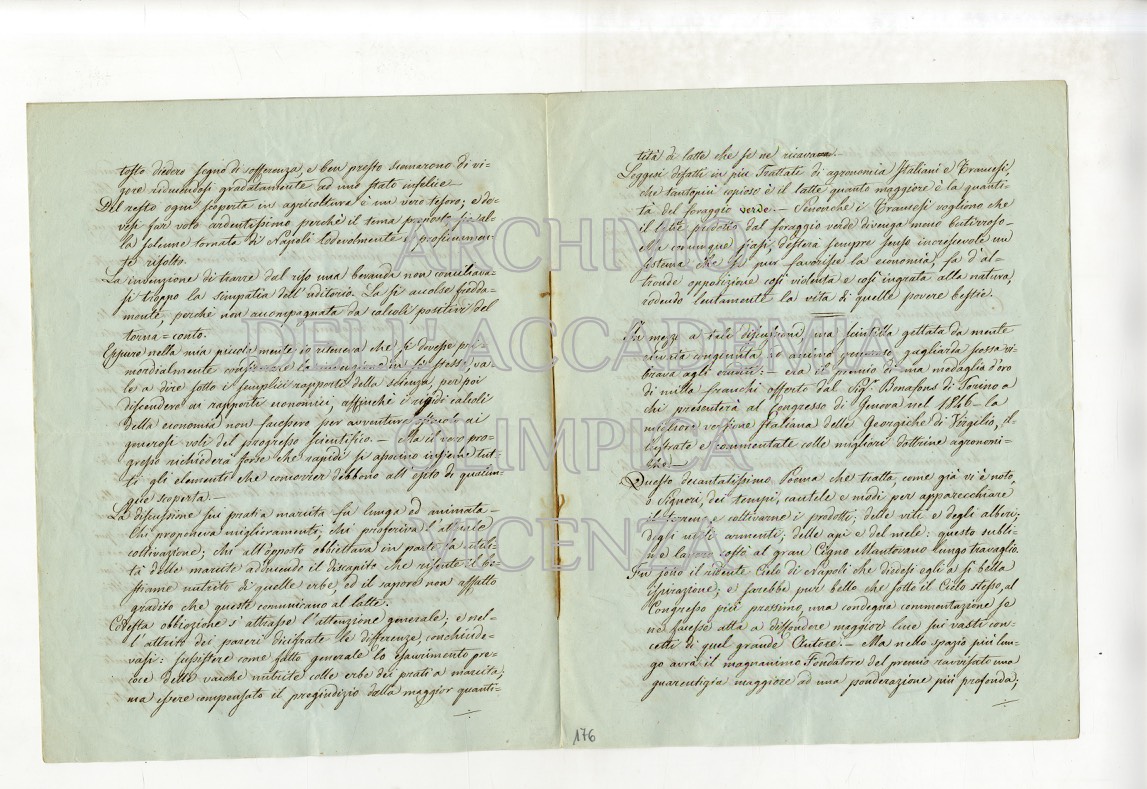 tosto diedero segno di sofferenza, e ben presto scemarono di vi-
gore riducendosi gradatamente ad uno stato infelice
Del resto ogni scoperta in agricoltura è un vero tesoro, e do-
vesi far voto ardentissimo perché il tema proposto sia al-
la solenne tornata di Napoli lodevolmente e proficuamen-
te risolto.
La invenzione di trarre dal riso una bevanda non conciliava-
si troppo la simpatia dell'uditorio. La si accolse fredda-
mente, perché non accompagnata da calcoli positivi del
torna=conto.
Eppure nella mia piccola mente io riteneva che si dovesse pri-
mordialmente considerare la invenzione in se stessa, va-
le a dire sotto i semplici rapporti della scienza, per poi
discendere ai rapporti economici, affinché i rigidi calcoli
della economia non facessero per avventura ostacolo ai
generosi voti del progresso scientifico. — Ma il vero pro-
gresso richiederà forse che rapidi si associno insieme tut-
ti gli elementi che concorrer debbono all'esito di qualun-
que scoperta. —
La discussione sui prati a marcita fu lunga ed animata —
Chi proponeva miglioramenti; chi preferiva l'attuale
coltivazione; chi all'opposto obbiettava in parte la utili-
tà delle marcite adducendo il discapito che risente il be-
stiame nutrito di quelle erbe, ed il sapore non affatto
gradito che queste comunicano al latte.
Cotesta obbiezione s'attrasse l'attenzione generale; e nel-
l'attrito dei pareri cifrate le differenze, conchiude-
vasi: sussistere come fatto generale lo esaurimento pre-
coce delle vacche nutrite colle erbe dei prati a marcita;
ma essere compensato il pregiudizio dalla maggior quanti-
tità di latte che se ne ricavano.
Leggesi difatti in più Trattati di agronomia Italiani e Francesi,
che tantopiù copioso è il latte quanto maggiore è la quanti-
tà del foraggio verde. — Senonché i Francesi vogliono che
il latte prodotto dal foraggio verde divenga meno butirroso —
Ma comunque siasi, desterà sempre senso increscevole un
sistema che se pur favorisse la economia, fa d'al-
tronde opposizione così violenta e così ingrata alla natura,
rodendo lentamente la vita di quelle povere bestie.
In mezzo a tali discussioni una scintilla gettata da mente
congiunta ad animo generoso, gagliarda scossa vi-
brava agli : — era il premio di una medaglia d'oro
di mille franchi offerto dal Sigr. Bonafous di Torino a
chi presenterà al Congresso di Genova nel 1846 la
migliore versione Italiana delle Georgiche di Virgilio, il-
lustrate e commentate colle migliori dottrine agronomi-
che. —
Questo decantatissimo Poema che tratta, come già vi è noto,
o Signori, dei tempi, cautele e modi per apparecchiare
il terreno e coltivarne i prodotti; delle viti e degli alberi;
degli utili armenti; delle api e del miele: questo subli-
me lavoro costò al gran Cigno Mantovano lungo travaglio.
Fu sotto il ridente Cielo di Napoli che diedesi egli a sì bella
ispirazione; e sarebbe pur bello che sotto il Cielo stesso, al
Congresso più prossimo, una condegna commentazione se
ne facesse atta a diffondere maggior luce sui vasti con-
cetti di quel grande Autore. — Ma nello spazio più lun-
go avrà il magnanimo Fondatore del premio ravvisato una
guarentigia maggiore ad una ponderazione più profonda;
176
ARCHIVIO
DELL'ACCADEMIA
OLIMPICA
VICENZA